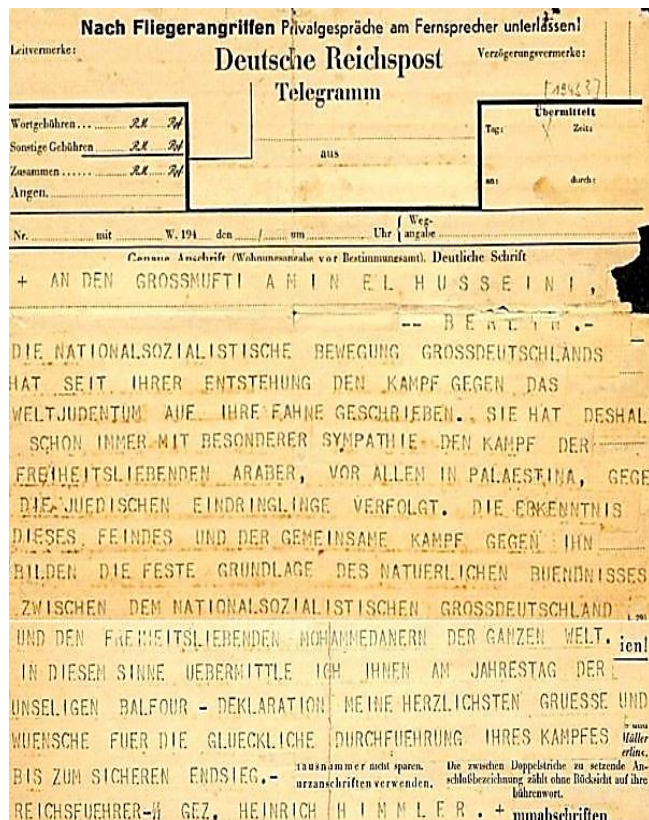 Nach Fliegerangriffen Privatgespräche am Fernsprecher unterlassen!
Leitvermerke:
Deutsche Reichspost
Verzögerungsvermerke:
Telegramm
[1943?]
Übermittelt
Wortgebühren RM Rpf
Tag: Zeit:
Sonstige Gebühren RM Rpf
aus
Zusammen RM Rpf
an: durch:
Angen.
Nr. mit W. 194 den / um Uhr { Weg-
angabe
Genaue Anschrift (Wohnungsangabe vor Bestimmungsamt). Deutliche Schrift
+ AN DEN GROSSMUFTI A M I N E L H U S S E I N I ,
-- B E R L I N .-
DIE NATIONALSOZIALISTISCHE BEWEGUNG GROSSDEUTSCHLANDS
HAT SEIT IHRER ENTSTEHUNG DEN KAMPF GEGEN DAS
WELTJUDENTUM AUF IHRE FAHNE GESCHRIEBEN. SIE HAT DESHAL
SCHON IMMER MIT BESONDERER SYMPATHIE DEN KAMPF DER
FREIHEITSLIEBENDEN ARABER, VOR ALLEN IN PALAESTINA, GEGE
DIE JUEDISCHEN EINDRINGLINGE VERFOLGT. DIE ERKENNTNIS
DIESES FEINDES UND DER GEMEINSAME KAMPF GEGEN IHN
BILDEN DIE FESTE GRUNDLAGE DES NATUERLICHEN BUENDNISSES
ZWISCHEN DEM NATIONALSOZIALISTISCHEN GROSSDEUTSCHLAND
UND DEN FREIHEITSLIEBENDEN MOHAMMEDANERN DER GANZEN WELT. ien!
IN DIESEM SINNE UEBERMITTLE ICH IHNEN AM JAHRESTAG DER
UNSELIGEN BALFOUR - DEKLARATION MEINE HERZLICHSTEN GRUESSE UND
WUENSCHE FUER DIE GLUECKLICHE DURCHFUEHRUNG IHRES KAMPFES Müller
BIS ZUM SICHEREN ENDSIEG.-
nicht sparen.
urzanschriften verwenden.
Die zwischen Doppelstriche zu setzende An-
schlußbezeichnung zählt ohne Rücksicht auf ihre
REICHSFUEHRER-SS GEZ. HEINRICH H I M M L E R . +